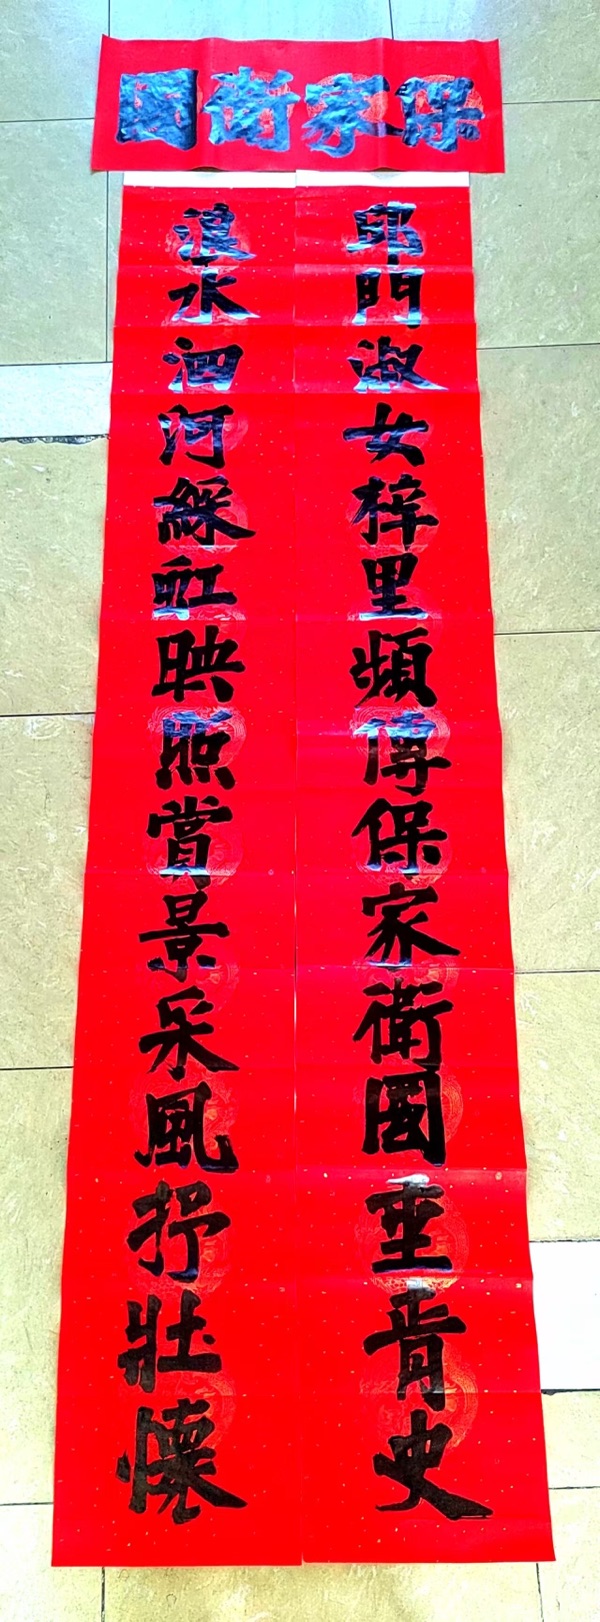 保家衛國
邱門淑女梓里頻傳保家衛國垂青史
浪水泗河綵虹映照賞景采風抒壯懷